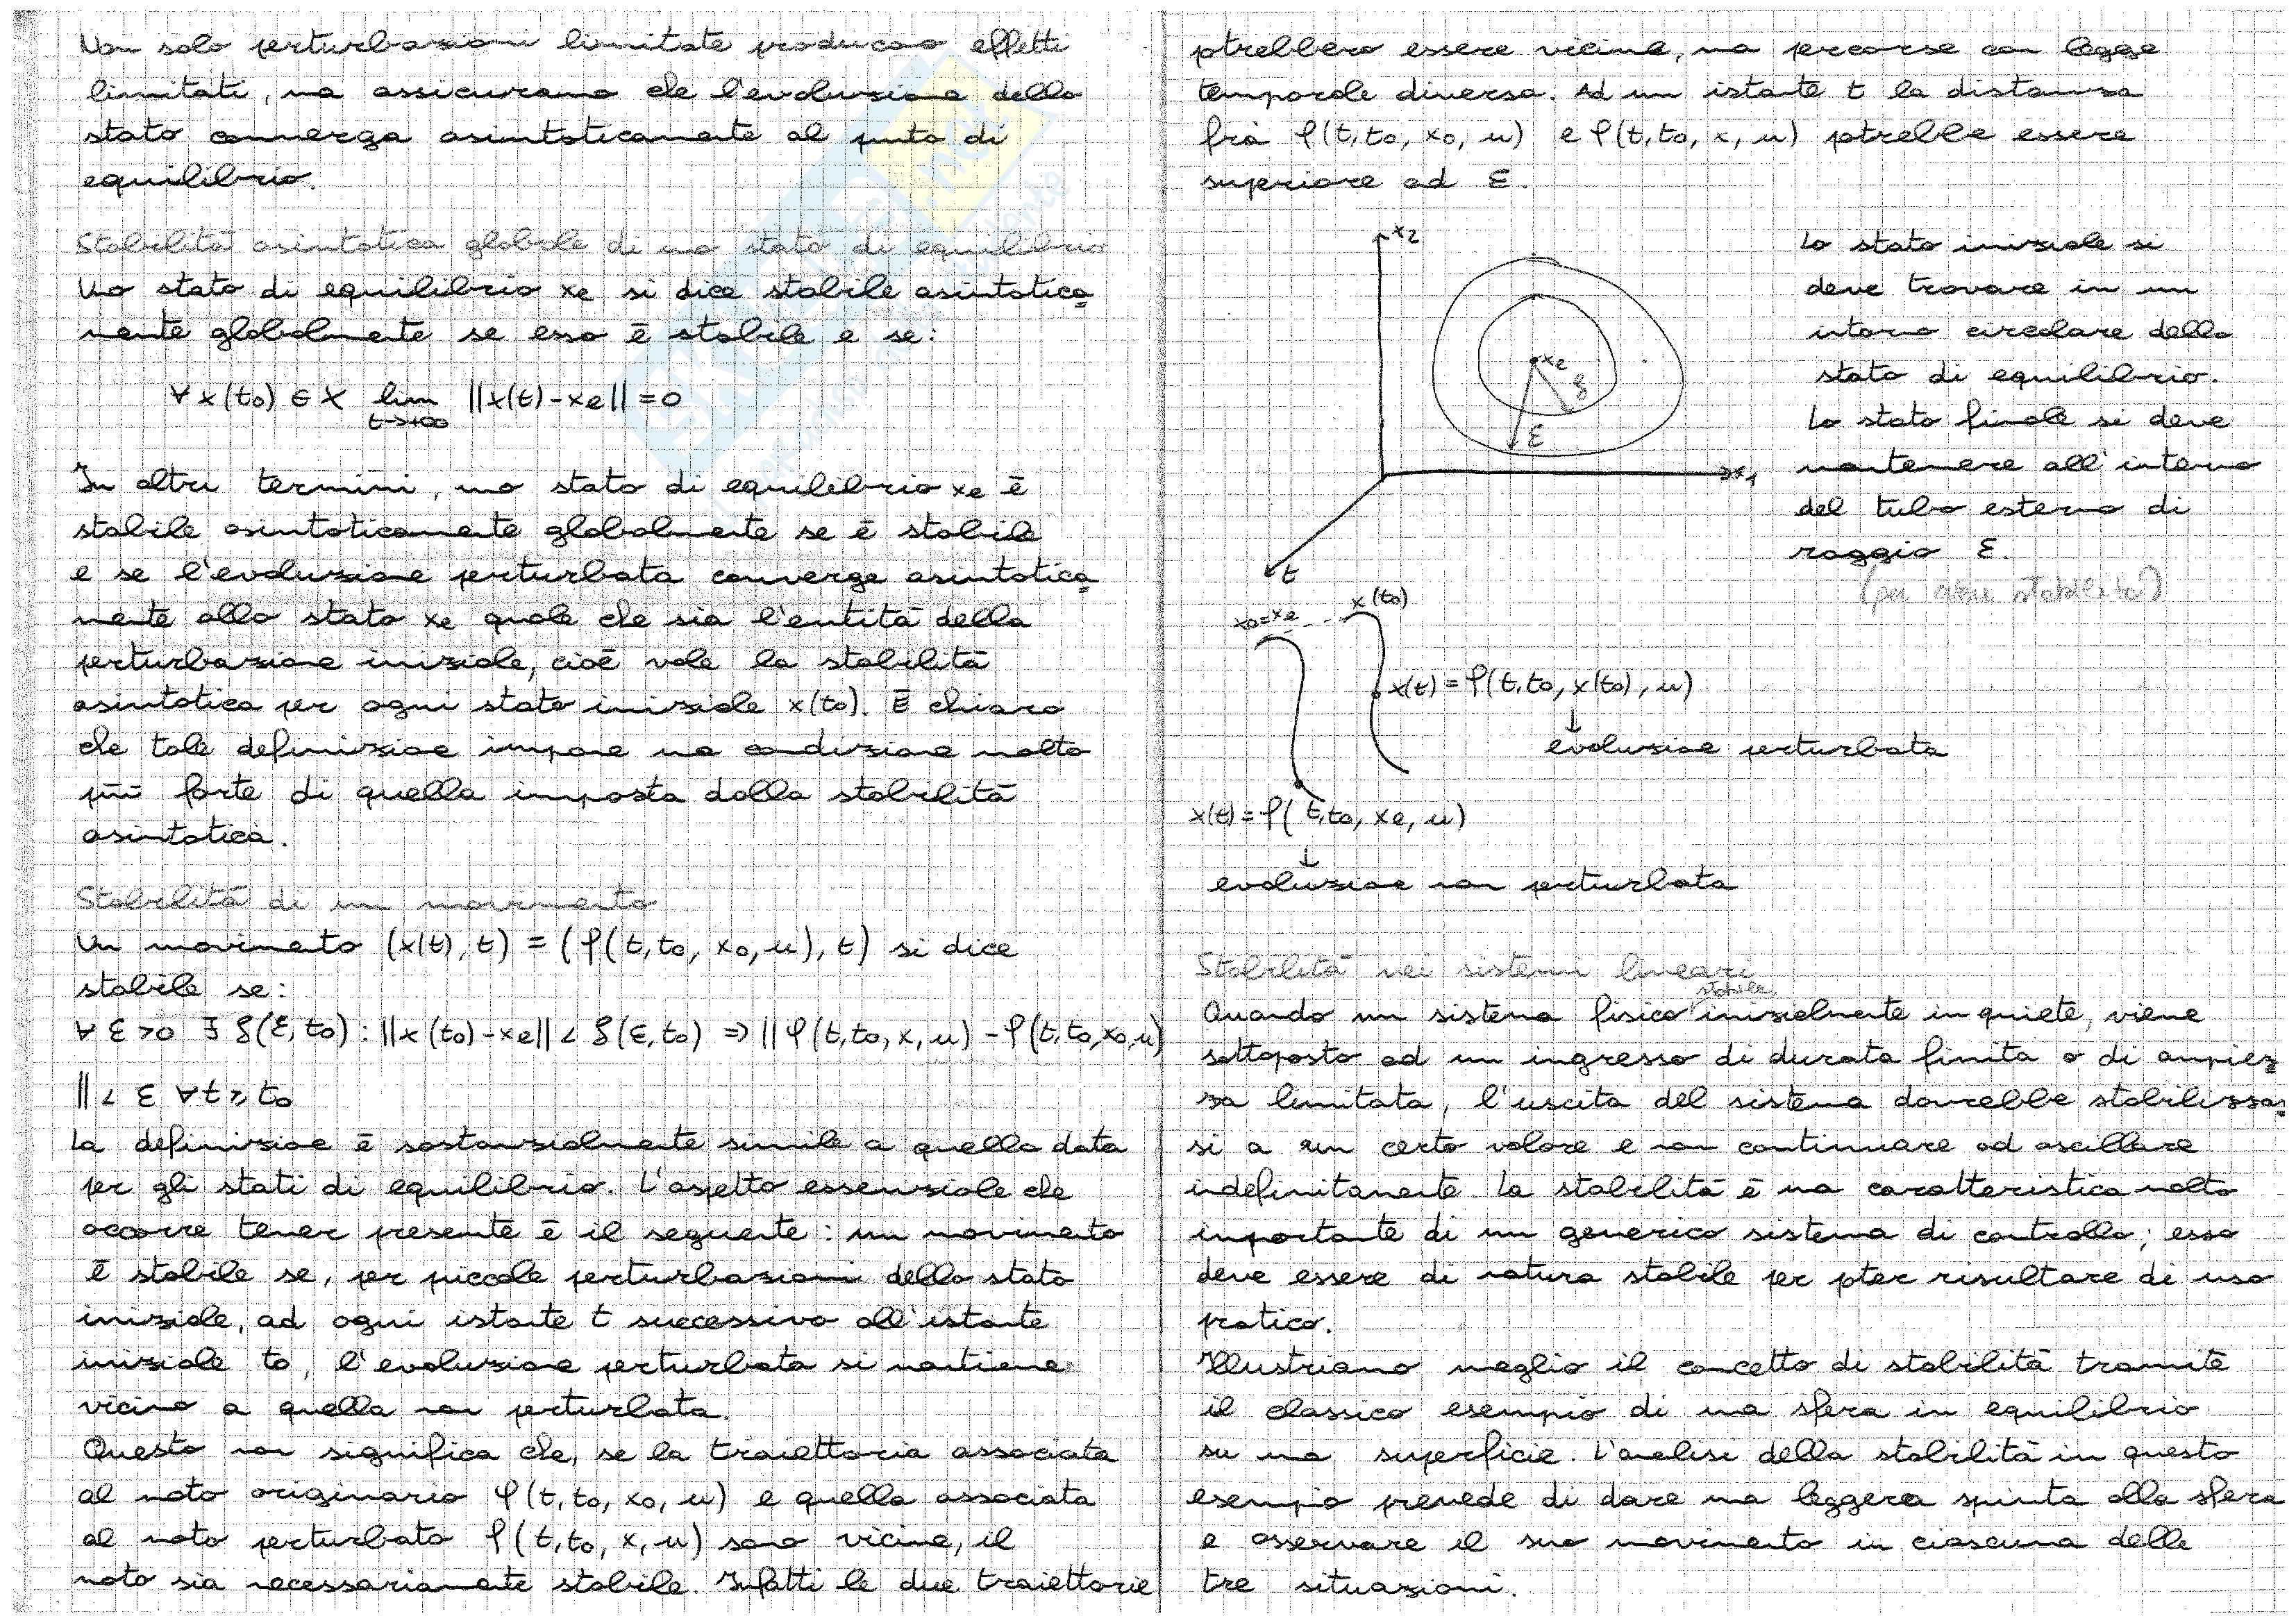 Non solo perturbazioni limitate producono effetti
limitati, ma assicurano che l'evoluzione dello
stato converga asintoticamente al punto di
equilibrio.
Stabilità asintotica globale di uno stato di equilibrio
Uno stato di equilibrio xe si dice stabile asintotica
mente globalmente se esso è stabile e se:
∀ x(t0) ∈ X lim t->+∞ ||x(t)-xe||=0
In altri termini, uno stato di equilibrio xe è
stabile asintoticamente globalmente se è stabile
e se l'evoluzione perturbata converge asintotica
mente allo stato xe quale che sia l'entità della
perturbazione iniziale, cioè vale la stabilità
asintotica per ogni stato iniziale x(t0). È chiaro
che tale definizione impone una condizione molto
più forte di quella imposta dalla stabilità
asintotica.
Stabilità di un movimento
Un movimento (x(t), t) = (φ(t,t0, x0, u), t) si dice
stabile se:
∀ ε>0 ∃ δ(ε,t0): ||x(t0)-xe|| < δ(ε,t0) ⇒ ||φ(t,t0,x,u) - φ(t,t0,x0,u)
|| < ε ∀t≥t0
La definizione è sostanzialmente simile a quella data
per gli stati di equilibrio. L'aspetto essenziale che
occorre tener presente è il seguente: un movimento
è stabile se, per piccole perturbazioni dello stato
iniziale, ad ogni istante t successivo all'istante
iniziale t0, l'evoluzione perturbata si mantiene
vicino a quella non perturbata.
Questo non significa che, se la traiettoria associata
al moto originario φ(t,t0, x0, u) e quella associata
al moto perturbato φ(t,t0, x, u) sono vicine, il
moto sia necessariamente stabile. Infatti le due traiettorie
potrebbero essere vicine, ma percorse con legge
temporale diversa. Ad un istante t la distanza
fra φ(t,t0, x0, u) e φ(t,t0, x, u) potrebbe essere
superiore ad ε.
x2
xe
δ
ε
x1
t
Lo stato iniziale si
deve trovare in un
intorno circolare dello
stato di equilibrio.
Lo stato finale si deve
mantenere all'interno
del tubo esterno di
raggio ε.
(per avere stabilità)
x0=xe
x(t0)
x(t) = φ(t,t0, x(t0), u)
↓
evoluzione perturbata
x(t) = φ(t,t0, xe, u)
↓
evoluzione non perturbata
Stabilità nei sistemi lineari
stabile,
Quando un sistema fisico inizialmente in quiete, viene
sottoposto ad un ingresso di durata finita o di ampiez
za limitata, l'uscita del sistema dovrebbe stabilizzar
si a un certo valore e non continuare ad oscillare
indefinitamente. La stabilità è una caratteristica molto
importante di un generico sistema di controllo; esso
deve essere di natura stabile per poter risultare di uso
pratico.
Illustriamo meglio il concetto di stabilità tramite
il classico esempio di una sfera in equilibrio
su una superficie. L'analisi della stabilità in questo
esempio prevede di dare una leggera spinta alla sfera
e osservare il suo movimento in ciascuna delle
tre situazioni.